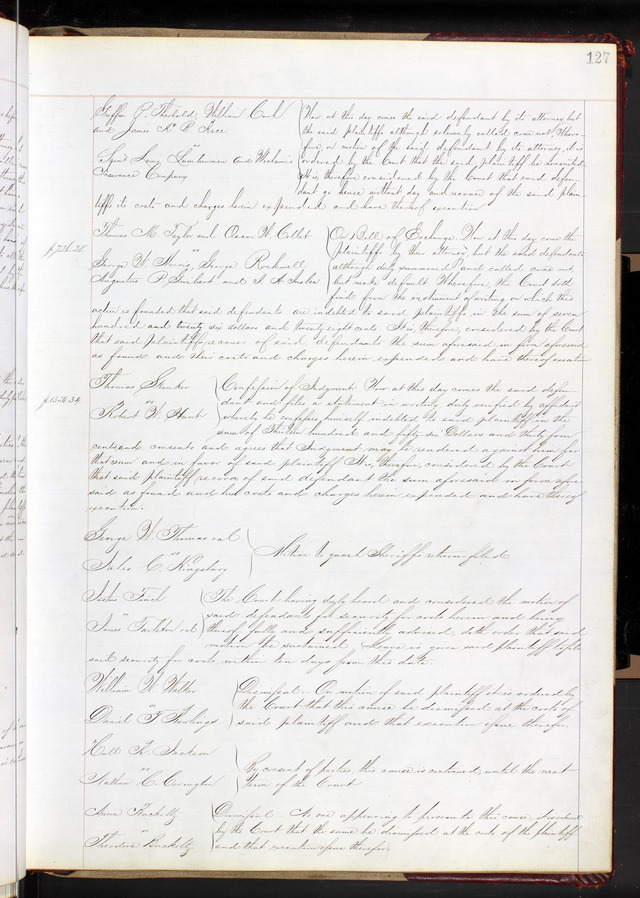 127
Griffin P. Theobald, William Cook
and James K. P. Price
vs
Lumbermans and Mechanic's
Insurance Company
Now at this day comes the said defendant by its attorney, but
the said plaintiffs although solemnly called come not. Where-
fore, on motion of the said defendant by its attorney, it is
ordered by the Court that the said plaintiff be nonsuited
It is, therefore, considered by the Court that said defen-
dant go hence without day and recover of the said plain-
tiff its costs and charges herein expended and have thereof execution
$726.28
Thomas M. Taylor and Oscar W. Collet
vs
George W. Harris, George Rockwell,
Augustus P. and J. A.
On Bill of Exchange. Now at this day come the
plaintiffs by their attorney, but the said defendants
although duly summoned and called come not
but make default. Wherefore, the Court doth
find from the instrument of writing on which this
action is founded that said defendants are indebted to said plaintiffs in the sum of seven
hundred and twenty six dollars and twenty eight cents. It is, therefore, considered by the Court
that said plaintiffs recover of said defendants the sum aforesaid in form aforesaid
as found and their costs and charges herein expended and have thereof execution
$1356.34
Thomas
vs
Robert W. Hunt
Confession of Judgment. Now at this day comes the said defen-
dant and files a statement in writing duly verified by affidavit
whereby he confesses himself indebted to said plaintiff in the
sum of Thirteen hundred and fifty six Dollars and thirty four
cents and consents and agrees that Judgment may be rendered against him for
that sum and in favor of said plaintiff. It is, therefore, considered by the Court
that said plaintiff recover of said defendant the sum aforesaid in form afore-
said as found and his costs and charges herein expended and have thereof
execution.
George W. Thomas et al
vs
C. Kingsbury
Motion to quash Sheriffs return filed
Finch
vs
James Tarlton et al
The Court having duly heard and considered the motion of
said defendants for security for costs herein and being
thereof fully and sufficiently advised, doth order that said
motion be sustained. Leave is given said plaintiff to file
said security for costs within ten days from this date
William W. Walker
vs
Daniel T. Rawlings
Dismissal. On motion of said plaintiff it is ordered by
the Court that this cause be dismissed at the costs of
said plaintiff and that execution issue therefor.
Hall F. Jackson
vs
Nathan C. Covington
By consent of parties this cause is continued until the next
term of the Court
Anna Buckeltz
vs
Theodore Buckeltz
Dismissal. No one appearing to prosecute this cause, it is ordered
by the Court that the same be dismissed at the costs of the plaintiff
and that execution issue therefor.